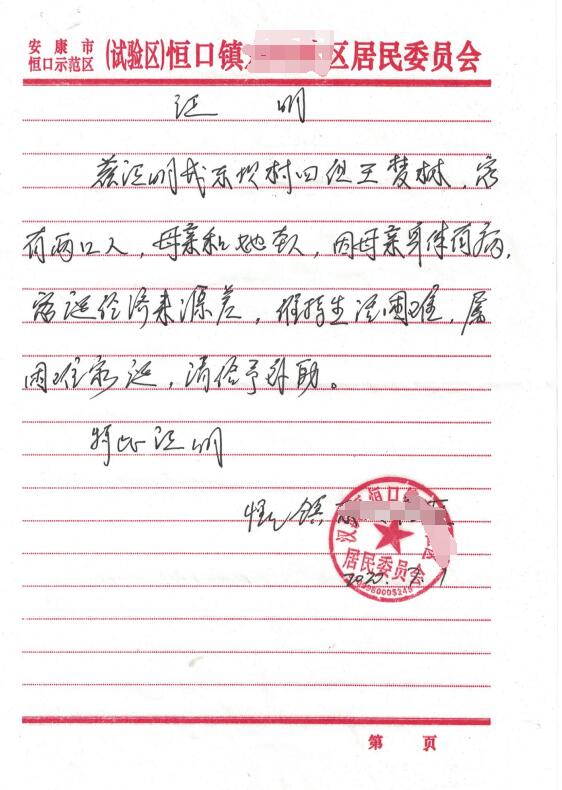 安康市
恒口示范区
(试验区)恒口镇 区居民委员会
证 明
兹证明我东坝村四组王梦林，家
有两口人，母亲和她本人，因母亲身体有病，
家庭经济来源差，维持生活困难，属
困难家庭，请给予补助。
特此证明
恒口镇
汉 恒口
居民委员会
第 页